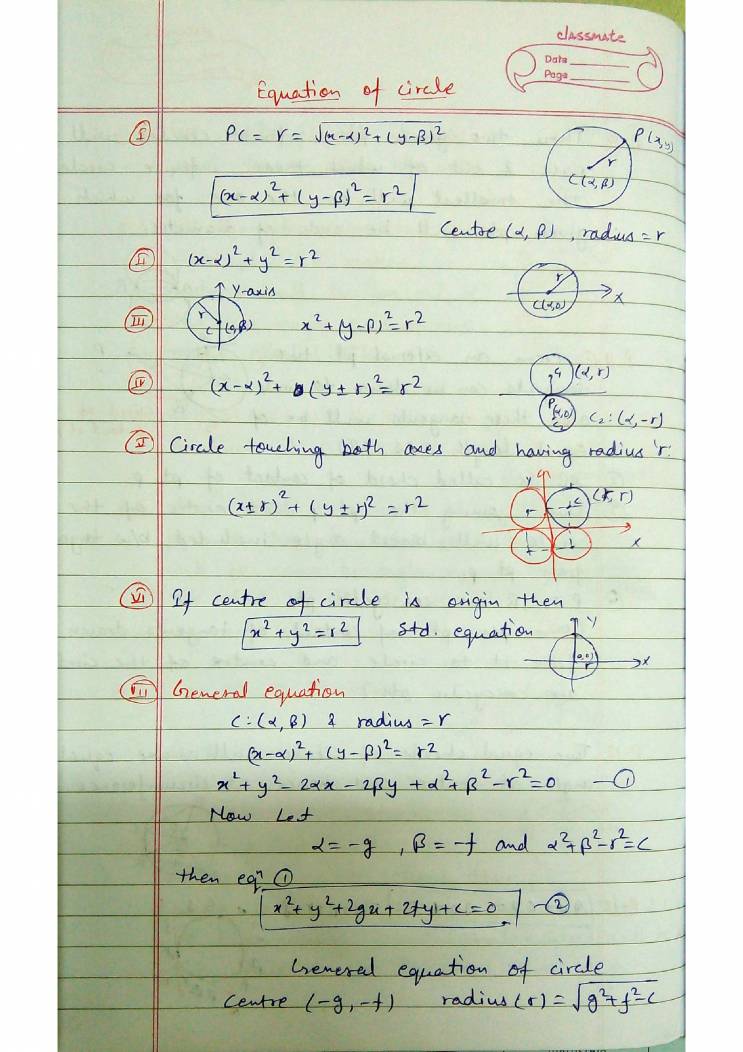 classmate
Date
Page
Equation of circle
I PC = r = √(x-α)²+(y-β)²
P(x,y)
r
C(α,β)
(x-α)²+(y-β)²=r²
Centre (α, β) , radius = r
II (x-α)²+y²=r²
r
C(α,0)
X
Y-axis
III r
C (0,β)
x²+(y-β)²=r²
IV (x-α)²+(y±r)²=r²
C₁ (α,r)
P(α,0)
C₂
C₂:(α,-r)
V Circle touching both axes and having radius 'r'.
(x±r)²+(y±r)²=r²
Y
r
C (r,r)
X
VI If centre of circle is origin then
x²+y²=r² Std. equation
Y
(0,0)
r
X
VII General equation
C:(α,β) & radius = r
(x-α)²+(y-β)²=r²
x²+y²-2αx-2βy+α²+β²-r²=0 —①
Now Let
α=-g , β=-f and α²+β²-r²=c
then eqn ①
x²+y²+2gx+2fy+c=0 —②
General equation of circle
Centre (-g,-f) radius(r)=√g²+f²-c